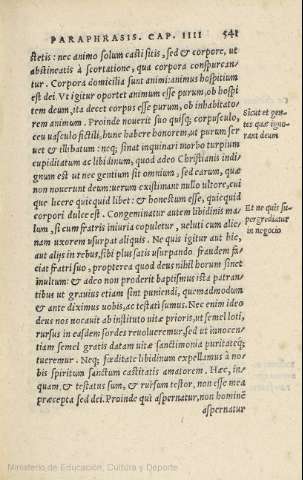 PARAPHRASIS. CAP. IIII 541
stetis: nec animo solum casti sitis, sed & corpore, ut
abstineatis à scortatione, qua corpora conspurcan-
tur. Corpora domicilia sunt animi: animus hospitium
est dei. Vt igitur oportet animum esse purum, ob hospi
tem deum, ita decet corpus esse purum, ob inhabitato
rem animum. Proinde nouerit suo quisq; corpusculo,
ceu uasculo fictili, hunc habere honorem, ut purum ser
uet & illibatum: neq; sinat inquinari morbo turpium
cupiditatum ac libidinum, quod adeo Christianis indi-
gnum est ut nec gentium sit omnium, sed earum, quæ
non nouerunt deum: uerum existimant nullo ultore, cui
que licere quicquid libet: & honestum esse, quicquid
corpori dulce est. Congeminatur autem libidinis ma-
lum, si cum fratris iniuria copuletur, ueluti cum alie-
nam uxorem usurpat aliquis. Ne quis igitur aut hic,
aut alijs in rebus, sibi plus satis usurpando fraudem fa-
ciat fratri suo, propterea quod deus nihil horum sinet
inultum: & adeo non proderit baptismus ista patran-
tibus ut grauius etiam sint puniendi, quemadmodum
& ante diximus uobis, ac testati sumus. Nec enim ideo
deus nos uocauit ab instituto uitæ prioris, ut semel loti,
rursus in easdem sordes reuolueremur, sed ut innocen-
tiam semel gratis datam uitæ sanctimonia puritateq;
tueremur. Neq; fœditate libidinum expellamus à no-
bis spiritum sanctum castitatis amatorem. Hæc, in-
quam, & testatus sum, & rursum testor, non esse mea
præcepta sed dei. Proinde qui aspernatur, non hominẽ
aspernatur
Sicut et gen-
tes quæ igno-
rant deum
Et ne quis su-
pergrediatur
in negocio
Ministerio de Educación, Cultura y Deporte